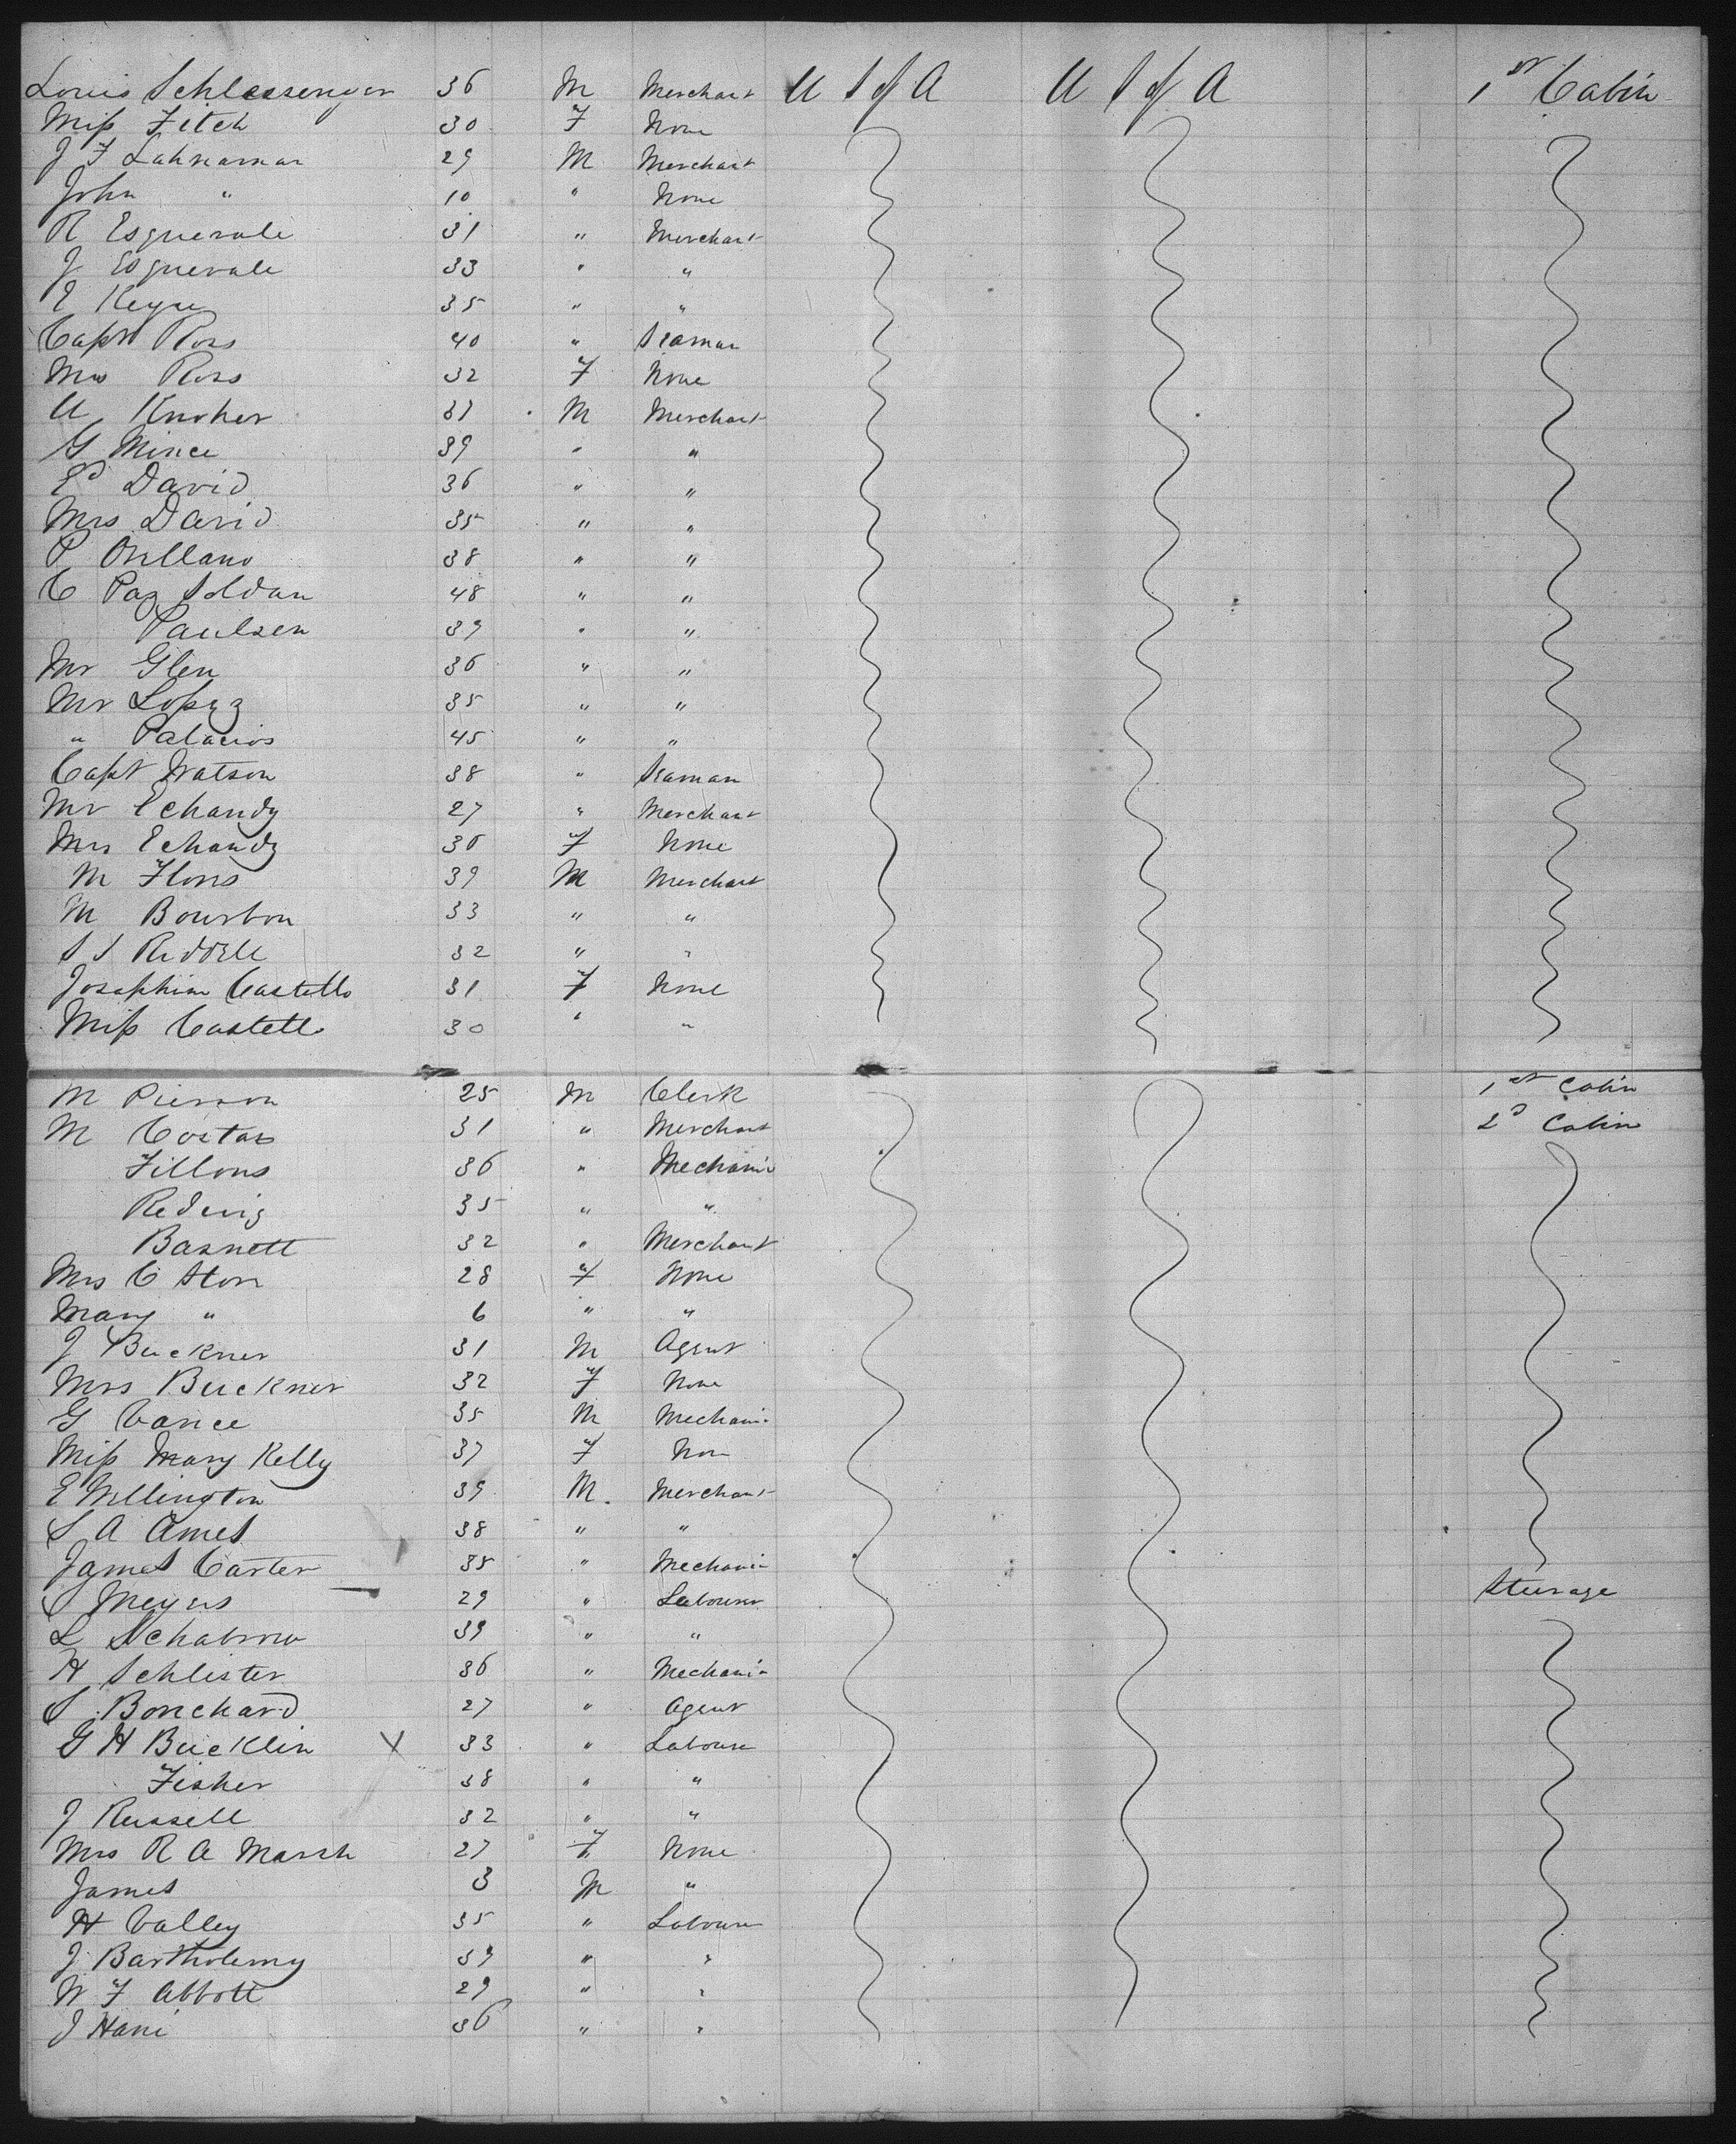 Louis Schlessenger 36 M Merchant U S of A U S of A 1st Cabin
Miss Fitch 30 F None
J F Lahnaman 29 M Merchant
John " 10 " None
R Esguerale 31 " Merchant
J Esguerale 33 " "
E Keyu 35 " "
Capt Ross 40 " Seaman
Mrs Ross 32 F None
U Knoher 31 M Merchant
G Mince 39 " "
Ed David 36 " "
Mrs David 35 " "
P Orillano 38 " "
C Paz Soldan 48 " "
Paulsen 39 " "
Mr Glen 36 " "
Mr Lopez 35 " "
" Palacios 45 " "
Capt Watson 38 " Seaman
Mr Echandy 27 " Merchant
Mrs Echandy 36 F None
M Floris 39 M Merchant
M Bourbon 33 " "
S S Riddell 32 " "
Josephine Castello 31 F None
Miss Castello 30 " "
M Pierson 25 M Clerk 1st Cabin
M Costas 31 " Merchant 2d Cabin
Fillons 36 " Mechanic
Redwig 35 " "
Basnett 32 " Merchant
Mrs C Storr 28 F None
Mary " 6 " "
J Buckner 31 M Agent
Mrs Buckner 32 F None
G Vance 35 M Mechanic
Miss Mary Kelly 37 F Non
E Wellington 39 M Merchant
S A Ames 38 " "
James Carter 35 " Mechanic
S Meyers 29 " Labourer Steerage
L Schabrow 39 " "
H Schlister 36 " Mechanic
S Bonchard 27 " Agent
G H Bucklin X 33 " Laboure
Fisher 38 " "
J Russell 32 " "
Mrs R A Marsh 27 F None
James 3 M "
H Valley 35 " Laboure
J Bartholemy 39 " "
W F Abbott 29 " "
J Hani 36 " "